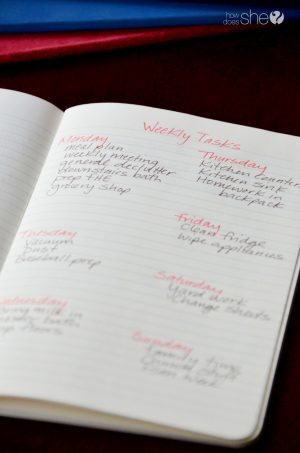 how does SHE?
Weekly Tasks
Monday
meal plan
weekly meeting
general declutter
downstairs bath
prep THE
grocery shop
Tuesday
vacuum
Dust
baseball prep
Thursday
Kitchen counter
Kitchen sink
Homework in
backpack
Friday
Clean fridge
wipe appliances
Saturday
Yard work
Change sheets
Sunday
family time